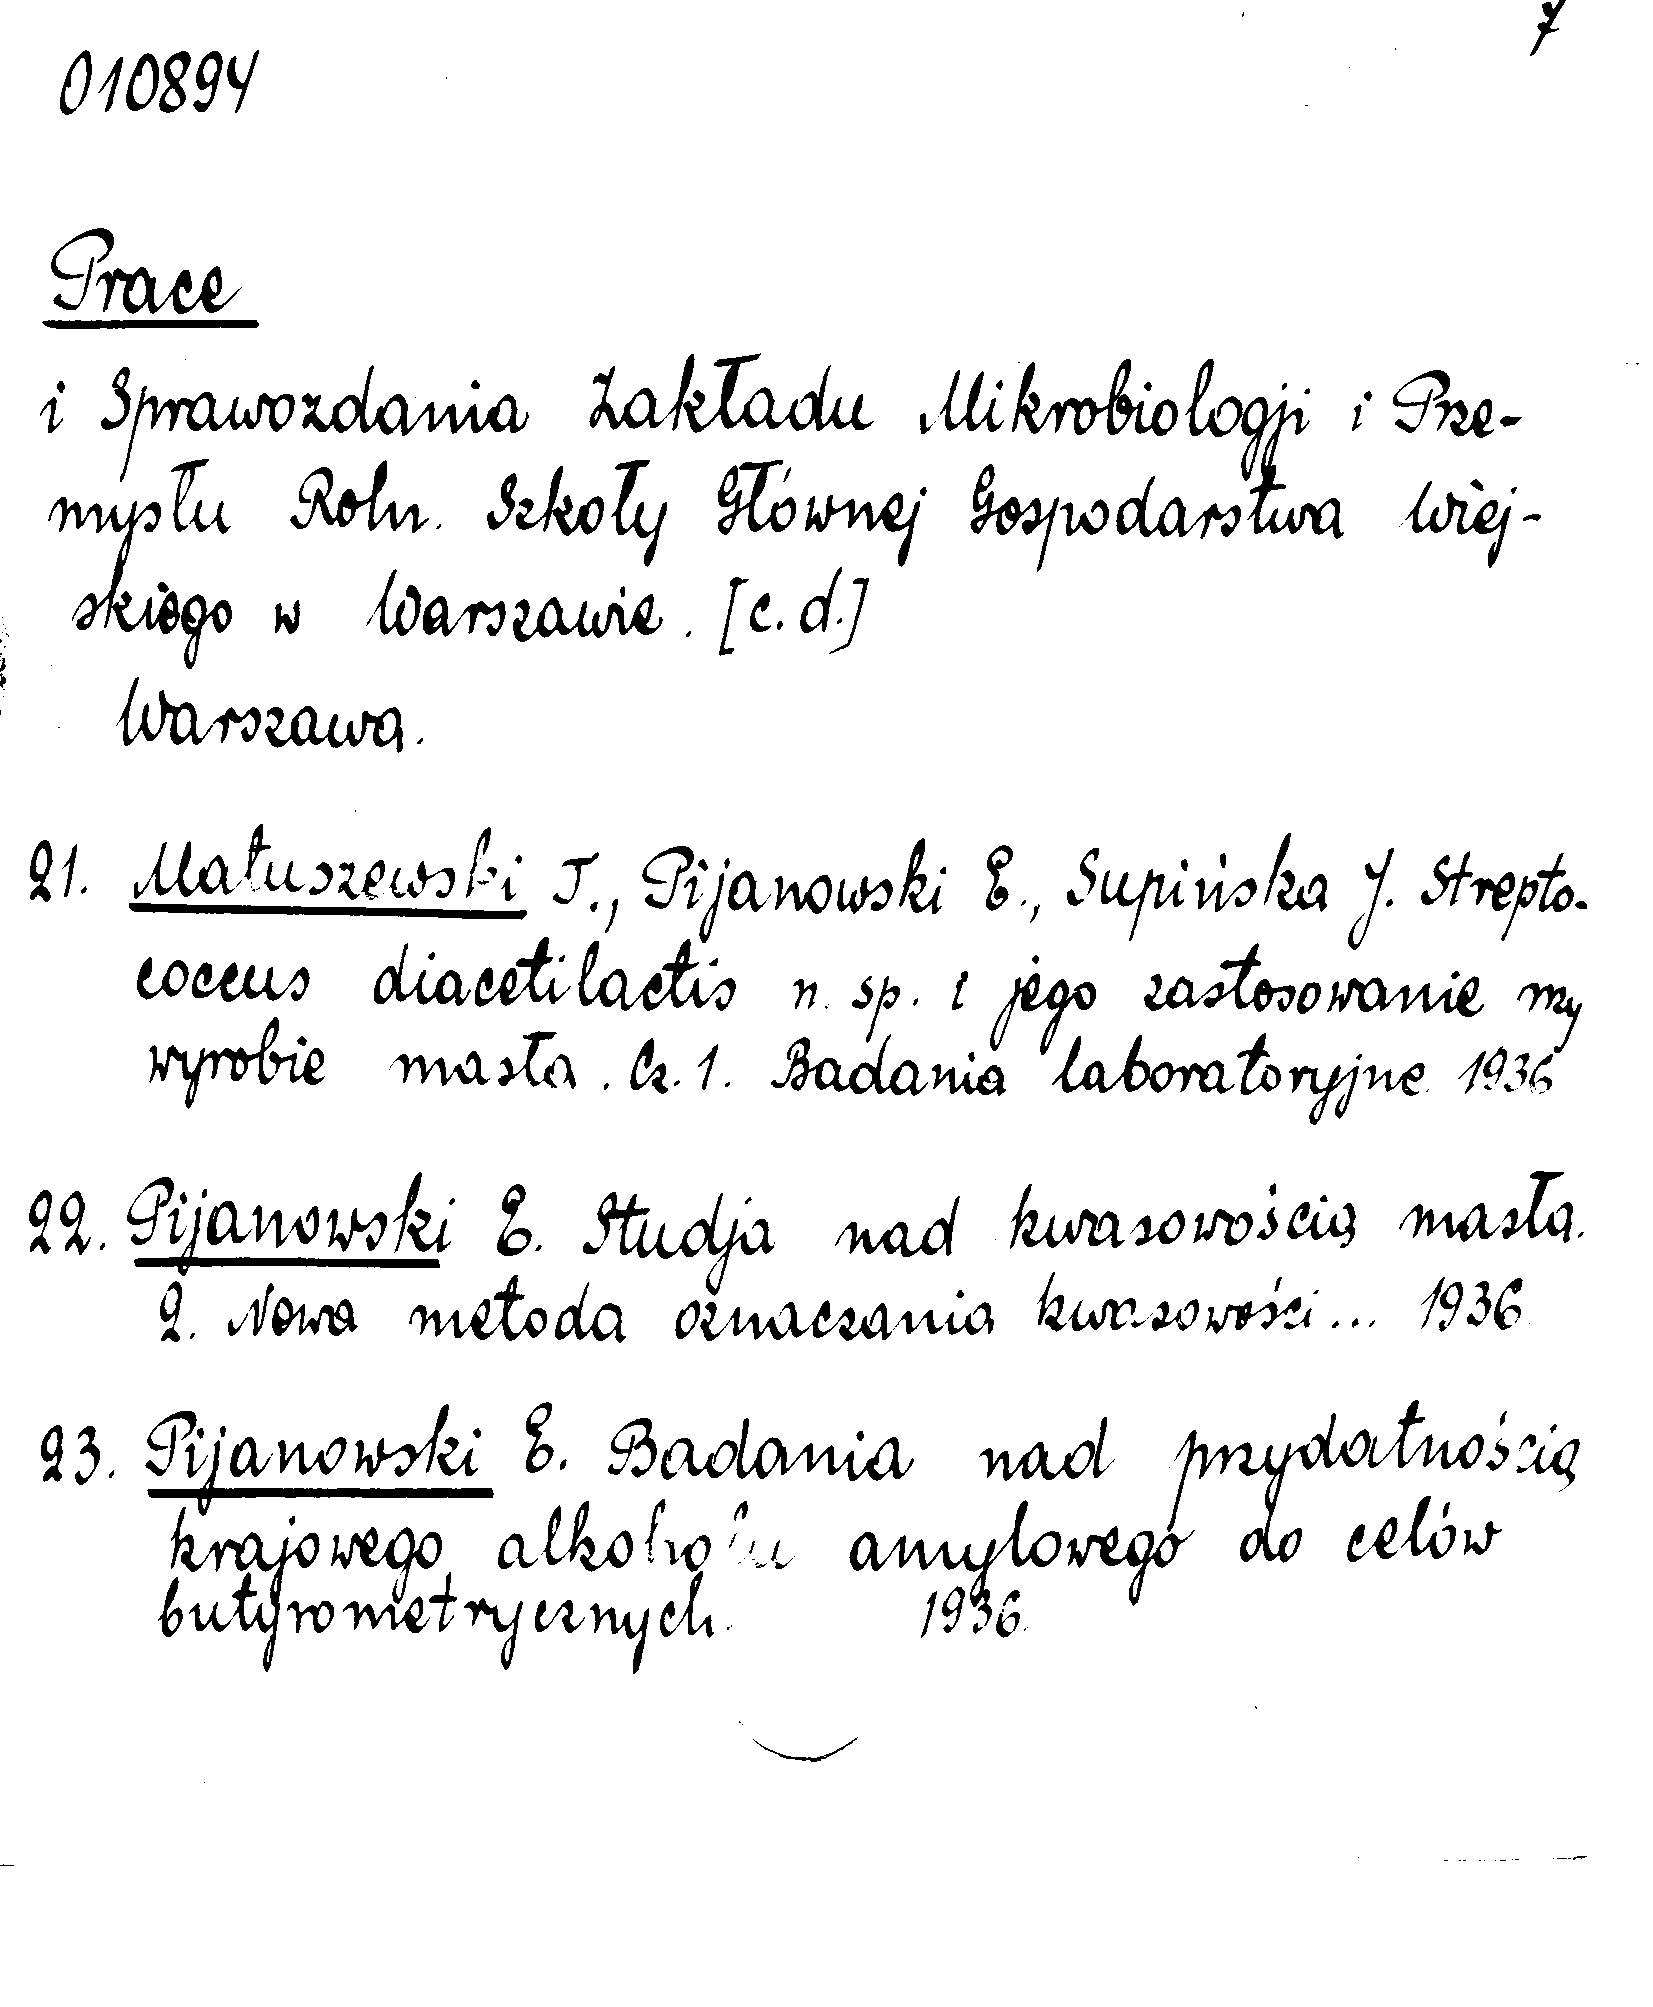 7
010894
Prace
i Sprawozdania Zakładu Mikrobiologji i Prze-
mysłu Roln. Szkoły Głównej Gospodarstwa Wiej-
skiego w Warszawie. [c.d.]
Warszawa.
21. Matuszewski T., Pijanowski E., Supińska J. Strepto-
coccus diacetilactis n. sp. i jego zastosowanie przy
wyrobie masła. Cz. 1. Badania laboratoryjne 1936
22. Pijanowski E. Studja nad kwasowością masła.
2. Nowa metoda oznaczania kwasowości... 1936
23. Pijanowski E. Badania nad przydatnością
krajowego alkoholu amylowego do celów
butyrometrycznych. 1936.